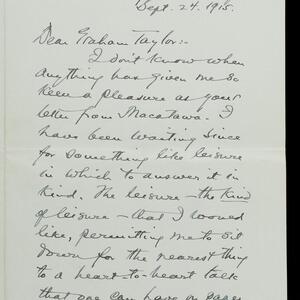 Sept. 24. 1915.
Dear Graham Taylor:-
I don't know when
anything has given me so
keen a pleasure as your
letter from Macatawa. I
have been waiting since
for something like leisure
in which to answer it in
kind. The leisure - the kind
of leisure - that I would
like, permitting me to sit
down for the nearest thing
to a heart-to-heart talk
that one can have on paper